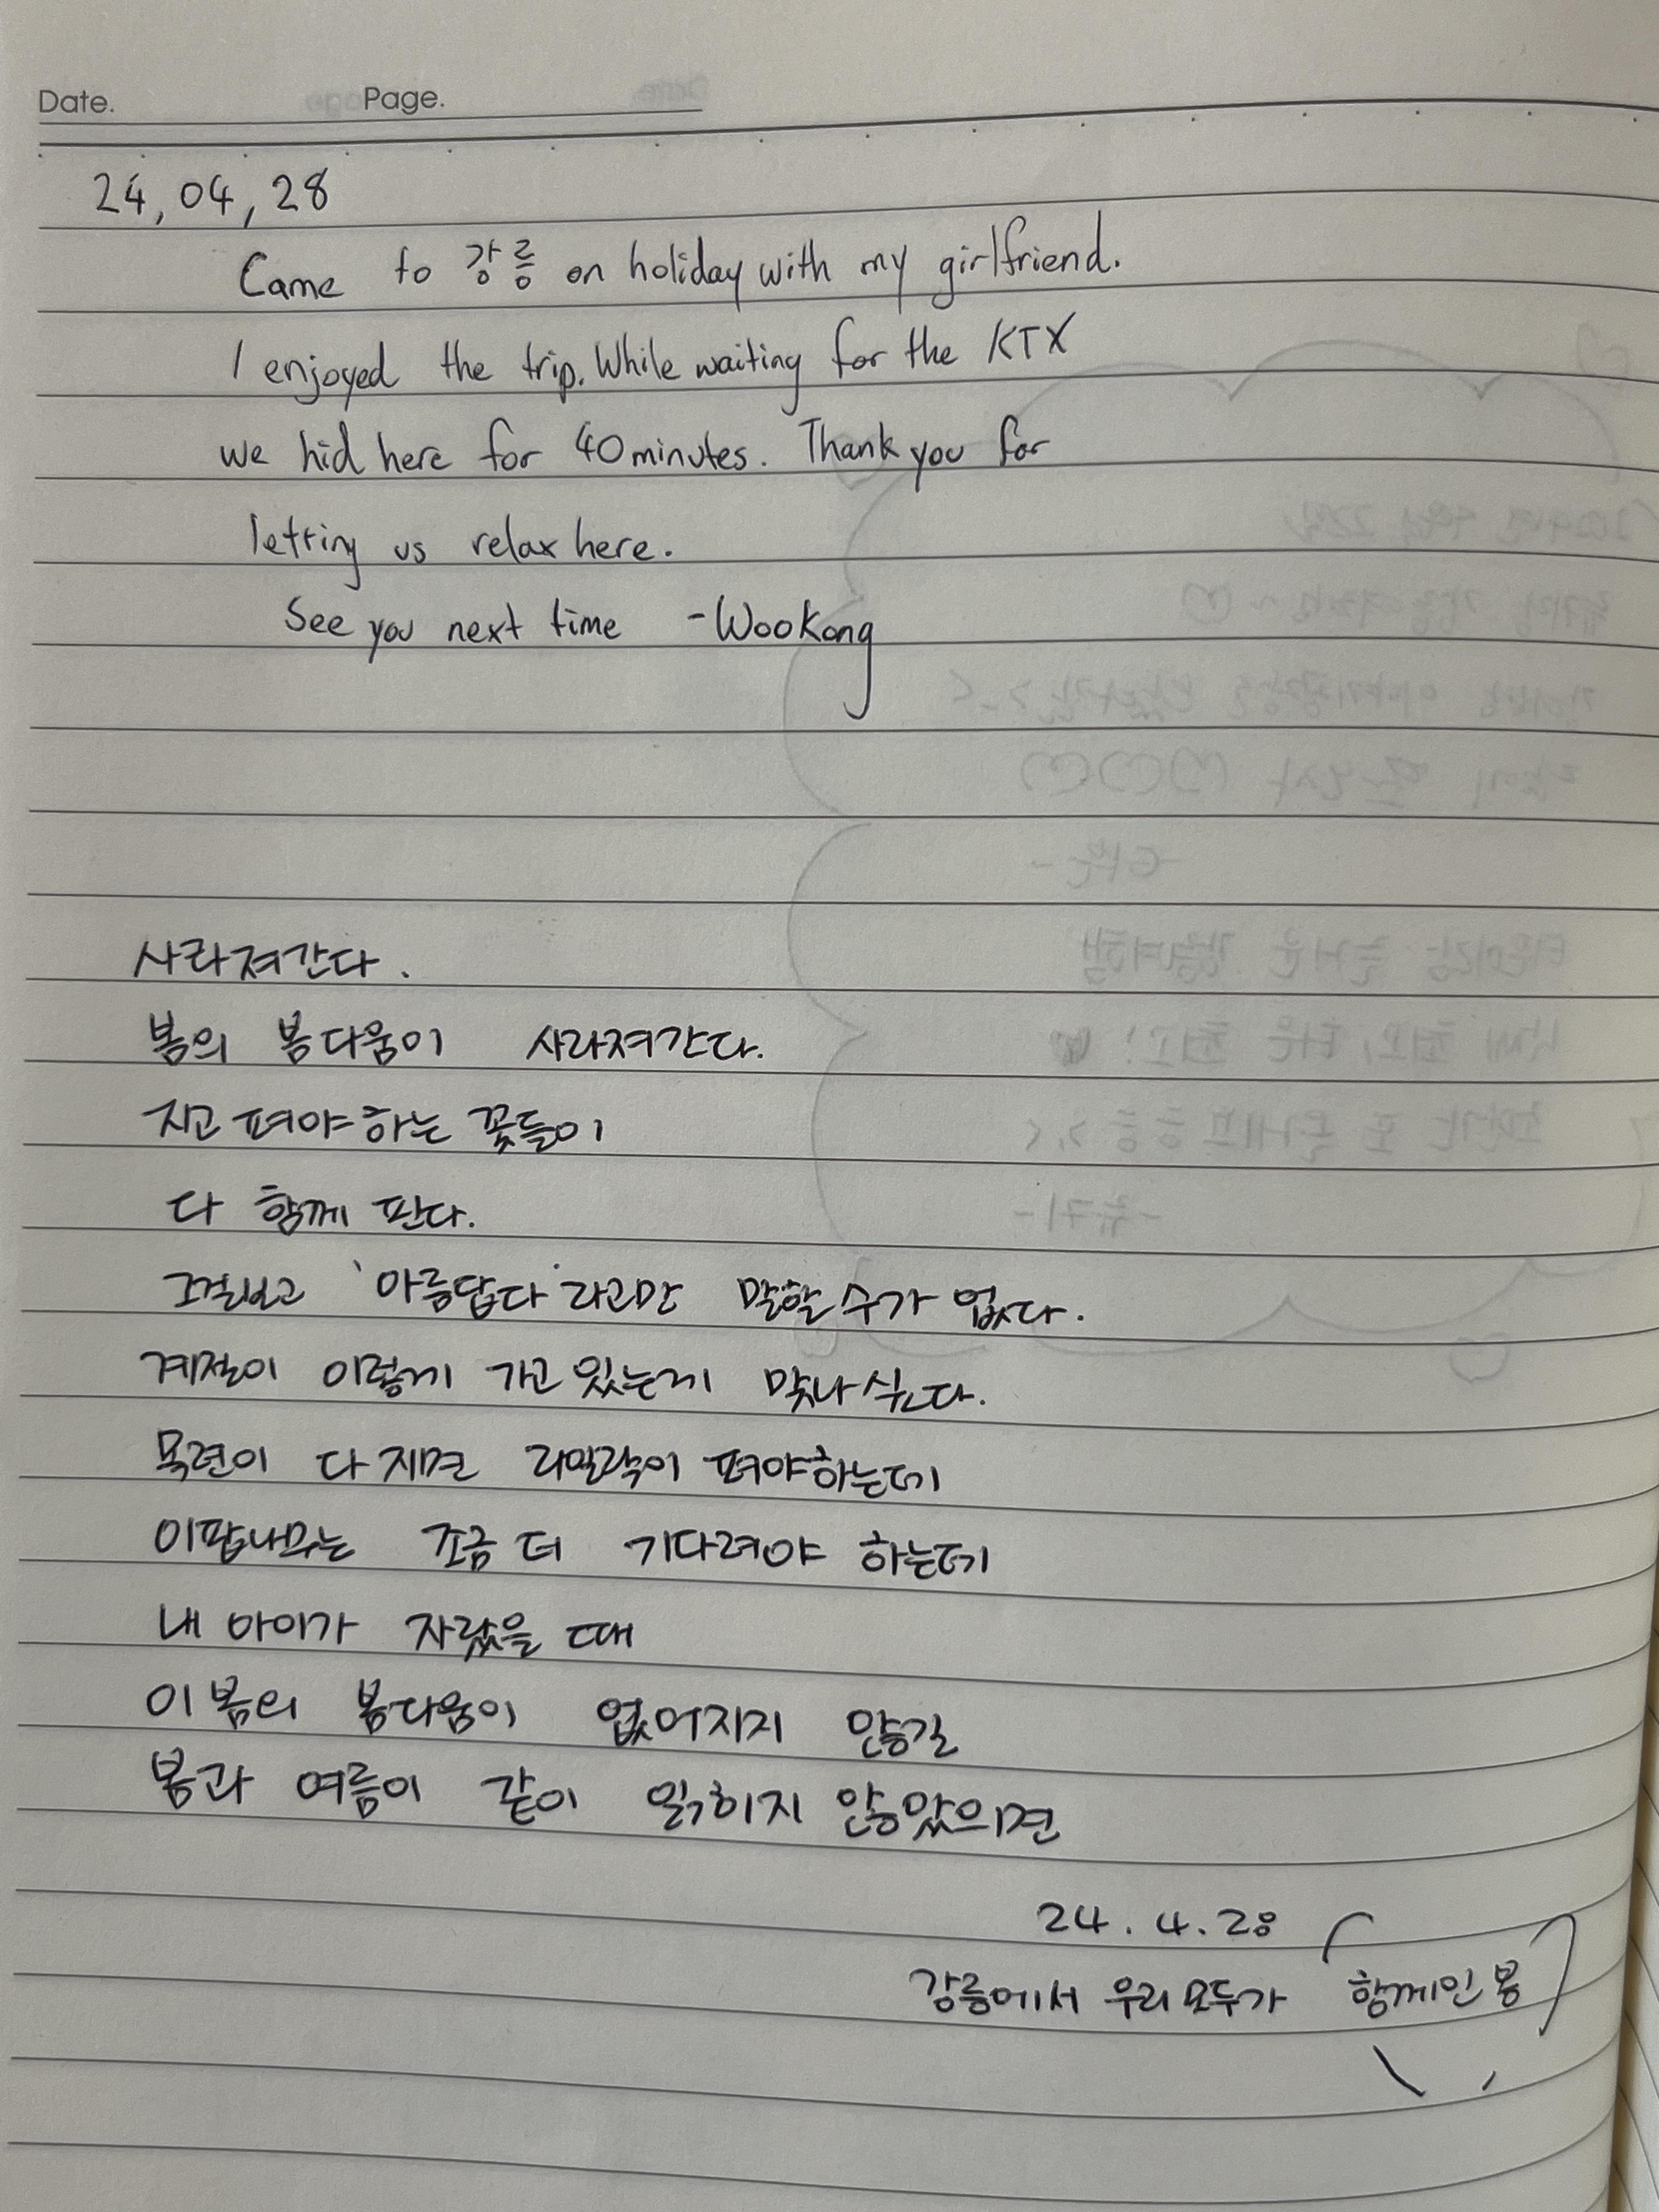 Date. Page.
24, 04, 28
Came to 강릉 on holiday with my girlfriend.
I enjoyed the trip. While waiting for the KTX
we hid here for 40 minutes. Thank you for
letting us relax here.
See you next time - Wookong
사라져간다.
봄의 봄다움이 사라져간다.
지고 펴야하는 꽃들이
다 함께 핀다.
그걸보고 '아름답다'라고만 말할 수가 없다.
계절이 이렇게 가고 있는게 맞나 싶다.
목련이 다 지면 라일락이 펴야하는데
이팝나무는 조금 더 기다려야 하는데
내 아이가 자랐을 때
이 봄의 봄다움이 없어지지 않길
봄과 여름이 같이 읽히지 않았으면
24. 4. 28
강릉에서 우리 모두가 함께인 봄